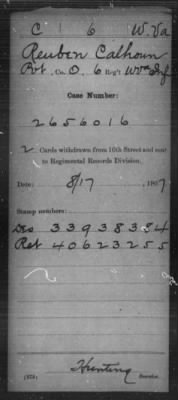 C 6 W.Va
Reuben Calhoun
Pvt., Co. O, 6 Reg't W Va Inf
Case Number:
2656016
2 Cards withdrawn from 16th Street and sent
to Regimental Records Division.
Date: 8/17, 1907
Stamp numbers:
Des 33938384
Ret 40623255
Hunting